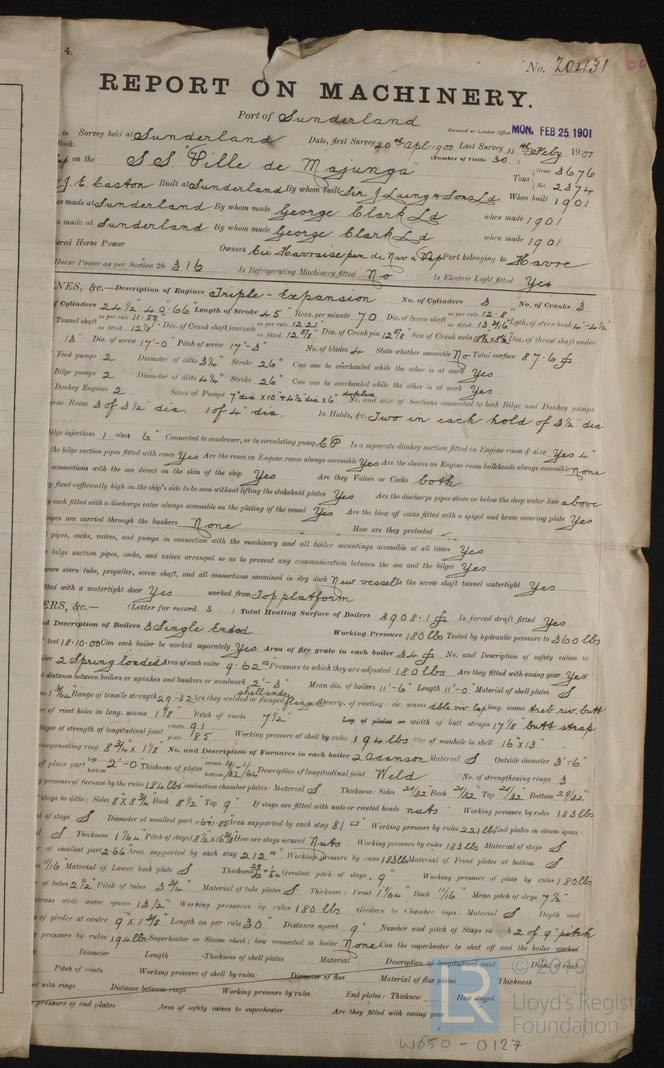 4.
No. 20431 60
REPORT ON MACHINERY.
Port of Sunderland
Received at London Office MON. FEB 25, 1901
in Survey held at Sunderland Date, first Survey 20th Apl 1900 Last Survey 11th Feby 1901
Book. (Number of Visits 30)
on the S S "Ville de Majunga" Tons Gross 3676
Net 2374
J. E. Easton Built at Sunderland By whom built Sir J Laing & Sons Ld When built 1901
made at Sunderland By whom made George Clark Ld when made 1901
made at Sunderland By whom made George Clark Ld when made 1901
ered Horse Power Owners Cie Havraise pen de Nav a Vap Port belonging to Havre
Horse Power as per Section 28 316 Is Refrigerating Machinery fitted No Is Electric Light fitted Yes
NES, &c.—Description of Engines Triple-Expansion No. of Cylinders 3 No. of Cranks 3
of Cylinders 24½" 40" 66" Length of Stroke 45" Revs. per minute 70 Dia. of Screw shaft as per rule 12.8" as fitted Lgth. of stern bush 4'-4½"
Tunnel shaft as per rule 11.59 as fitted 12⅛" Dia. of Crank shaft journals as per rule 12.21 as fitted 12⅝" Dia. of Crank pin 12⅝" Size of Crank webs Dia. of thrust shaft under
13" Dia. of screw 17'-0" Pitch of screw 17'-3" No. of blades 4 State whether moveable No Total surface 87.6
Feed pumps 2 Diameter of ditto 3¼" Stroke 26" Can one be overhauled while the other is at work Yes
Bilge pumps 2 Diameter of ditto 4¼" Stroke 26" Can one be overhauled while the other is at work Yes
Donkey Engines 2 Sizes of Pumps 7" dia x 10" & 4½" dia x 6" duplex No. and size of Suctions connected to both Bilge and Donkey pumps
gine Room 3 of 3½" dia. 1 of 4" dia. In Holds, &c. Two in each hold of 3½" dia
bilge injections 1 sizes 6" Connected to condenser, or to circulating pump C P Is a separate donkey suction fitted in Engine room & size Yes 4"
the bilge suction pipes fitted with roses Yes Are the roses in Engine room always accessible Yes Are the sluices on Engine room bulkheads always accessible None
connections with the sea direct on the skin of the ship Yes Are they Valves or Cocks both
y fixed sufficiently high on the ship's side to be seen without lifting the stokehold plates Yes Are the discharge pipes above or below the deep water line above
y each fitted with a discharge valve always accessible on the plating of the vessel Yes Are the blow off cocks fitted with a spigot and brass covering plate Yes
pipes are carried through the bunkers None How are they protected
pipes, cocks, valves, and pumps in connection with the machinery and all boiler mountings accessible at all times Yes
bilge suction pipes, cocks, and valves arranged so as to prevent any communication between the sea and the bilges Yes
were stern tube, propeller, screw shaft, and all connections examined in dry dock New vessel Is the screw shaft tunnel watertight Yes
tted with a watertight door Yes worked from Top platform
ERS, &c.— (Letter for record S) Total Heating Surface of Boilers 3908.1 Is forced draft fitted Yes
d Description of Boilers 3 Single Ended Working Pressure 180 lbs Tested by hydraulic pressure to 360 lbs
test 18.10.00 Can each boiler be worked separately Yes Area of fire grate in each boiler 34 No. and Description of safety valves to
iler 2 Spring loaded Area of each valve 9.62 Pressure to which they are adjusted 180 lbs Are they fitted with easing gear Yes
t distance between boilers or uptakes and bunkers or woodwork 2'-3" Mean dia. of boilers 11'-6" Length 11'-0" Material of shell plates S
Range of tensile strength 29-32 Are they welded or flanged flanged Descrip. of riveting: cir. seams dble riv. lap long. seams treb. riv. butt
r of rivet holes in long. seams 1⅛" Pitch of rivets 7½" Lap of plates or width of butt straps 17⅛" butt strap
tages of strength of longitudinal joint rivets 91 plate 85 Working pressure of shell by rules 194 lbs Size of manhole in shell 16" x 13"
ompensating ring 8¾" x 1⅛" No. and Description of Furnaces in each boiler 2 adamson Material S Outside diameter 3'-6"
of plain part top bottom 2'-0" Thickness of plates crown bottom Description of longitudinal joint Weld No. of strengthening rings 3
g pressure of furnace by the rules 184 lbs Combustion chamber plates: Material S Thickness: Sides 21/32" Back 21/32" Top 21/32" Bottom 29/32"
stays to ditto: Sides 8 x 8¾ Back 8½" Top 9" If stays are fitted with nuts or riveted heads nuts Working pressure by rules 183 lbs
l of stays S Diameter at smallest part Area supported by each stay 81 Working pressure by rules 221 lbs End plates in steam space:
S Thickness 1 1/64 Pitch of stays How are stays secured Nuts Working pressure by rules 183 lbs Material of stays S
r at smallest part 2.66 Area supported by each stay 212 Working pressure by rules 183 lbs Material of Front plates at bottom S
ss 11/16" Material of Lower back plate S Thickness Greatest pitch of stays 9" Working pressure of plate by rules 180 lbs
r of tubes 2½" Pitch of tubes 3¾" Material of tube plates S Thickness: Front 1 1/64" Back 11/16" Mean pitch of stays 7½"
cross wide water spaces 13½" Working pressures by rules 180 lbs Girders to Chamber tops: Material S Depth and
s of girder at centre Length as per rule 30" Distance apart 9" Number and pitch of Stays in each 2 of 9" pitch
pressure by rules 194 lbs Superheater or Steam chest; how connected to boiler None Can the superheater be shut off and the boiler worked
Diameter Length Thickness of shell plates Material Description of longitudinal joint Diam. of rivet
Pitch of rivets Working pressure of shell by rules Diameter of flue Material of flue plates Thickness
ed with rings Distance between rings Working pressure by rules End plates: Thickness How stayed
pressure of end plates Area of safety valves to superheater Are they fitted with easing gear
© 2019
LR
Lloyd's Register
Foundation
W650-0127